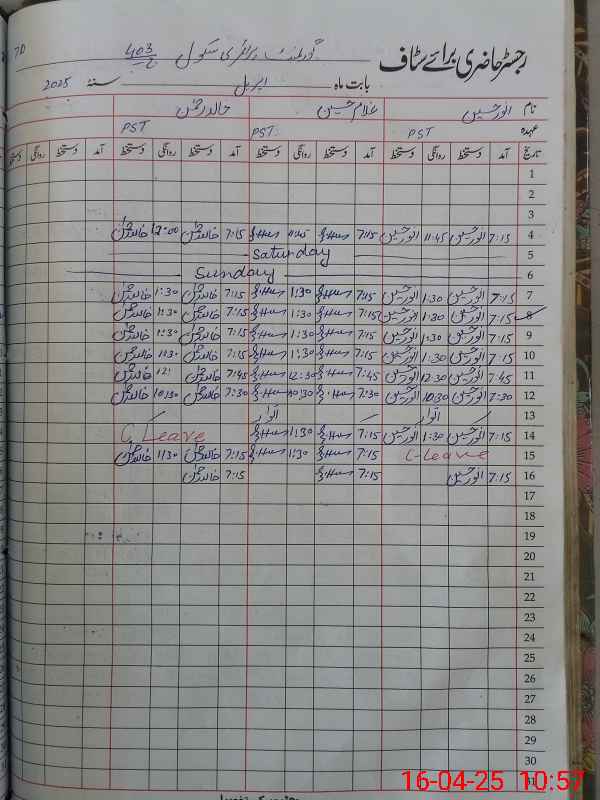 70
رجسٹر حاضری برائے سٹاف
گورنمنٹ پرائمری سکول 403
بابت ماہ اپریل سنہ 2025
نام انور حسین غلام حسین خالد رحمن
عہدہ PST PST PST
تاریخ آمد دستخط روانگی دستخط آمد دستخط روانگی دستخط آمد دستخط روانگی دستخط آمد دستخط روانگی دستخط
1
2
3
4 7:15 انور حسین 11:45 انور حسین 7:15 11:45 7:15 خالد رحمن 12:00 خالد رحمن
5 Saturday
6 Sunday
7 7:15 انور حسین 1:30 انور حسین 7:15 1:30 7:15 خالد رحمن 1:30 خالد رحمن
8 7:15 انور حسین 1:30 انور حسین 7:15 1:30 7:15 خالد رحمن 1:30 خالد رحمن
9 7:15 انور حسین 1:30 انور حسین 7:15 1:30 7:15 خالد رحمن 1:30 خالد رحمن
10 7:15 انور حسین 1:30 انور حسین 7:15 1:30 7:15 خالد رحمن 1:30 خالد رحمن
11 7:45 انور حسین 12:30 انور حسین 7:45 12:30 7:45 خالد رحمن خالد رحمن
12 7:30 انور حسین 10:30 انور حسین 7:30 10:30 7:30 خالد رحمن 10:30 خالد رحمن
13 اتوار اتوار
14 7:15 انور حسین 1:30 انور حسین 7:15 1:30 C. Leave
15 C-Leave 7:15 1:30 7:15 خالد رحمن 1:30 خالد رحمن
16 7:15 انور حسین 7:15 7:15 خالد رحمن
17
18
19
20
21
22
23
24
25
26
27
28
29
30
31
16-04-25 10:57